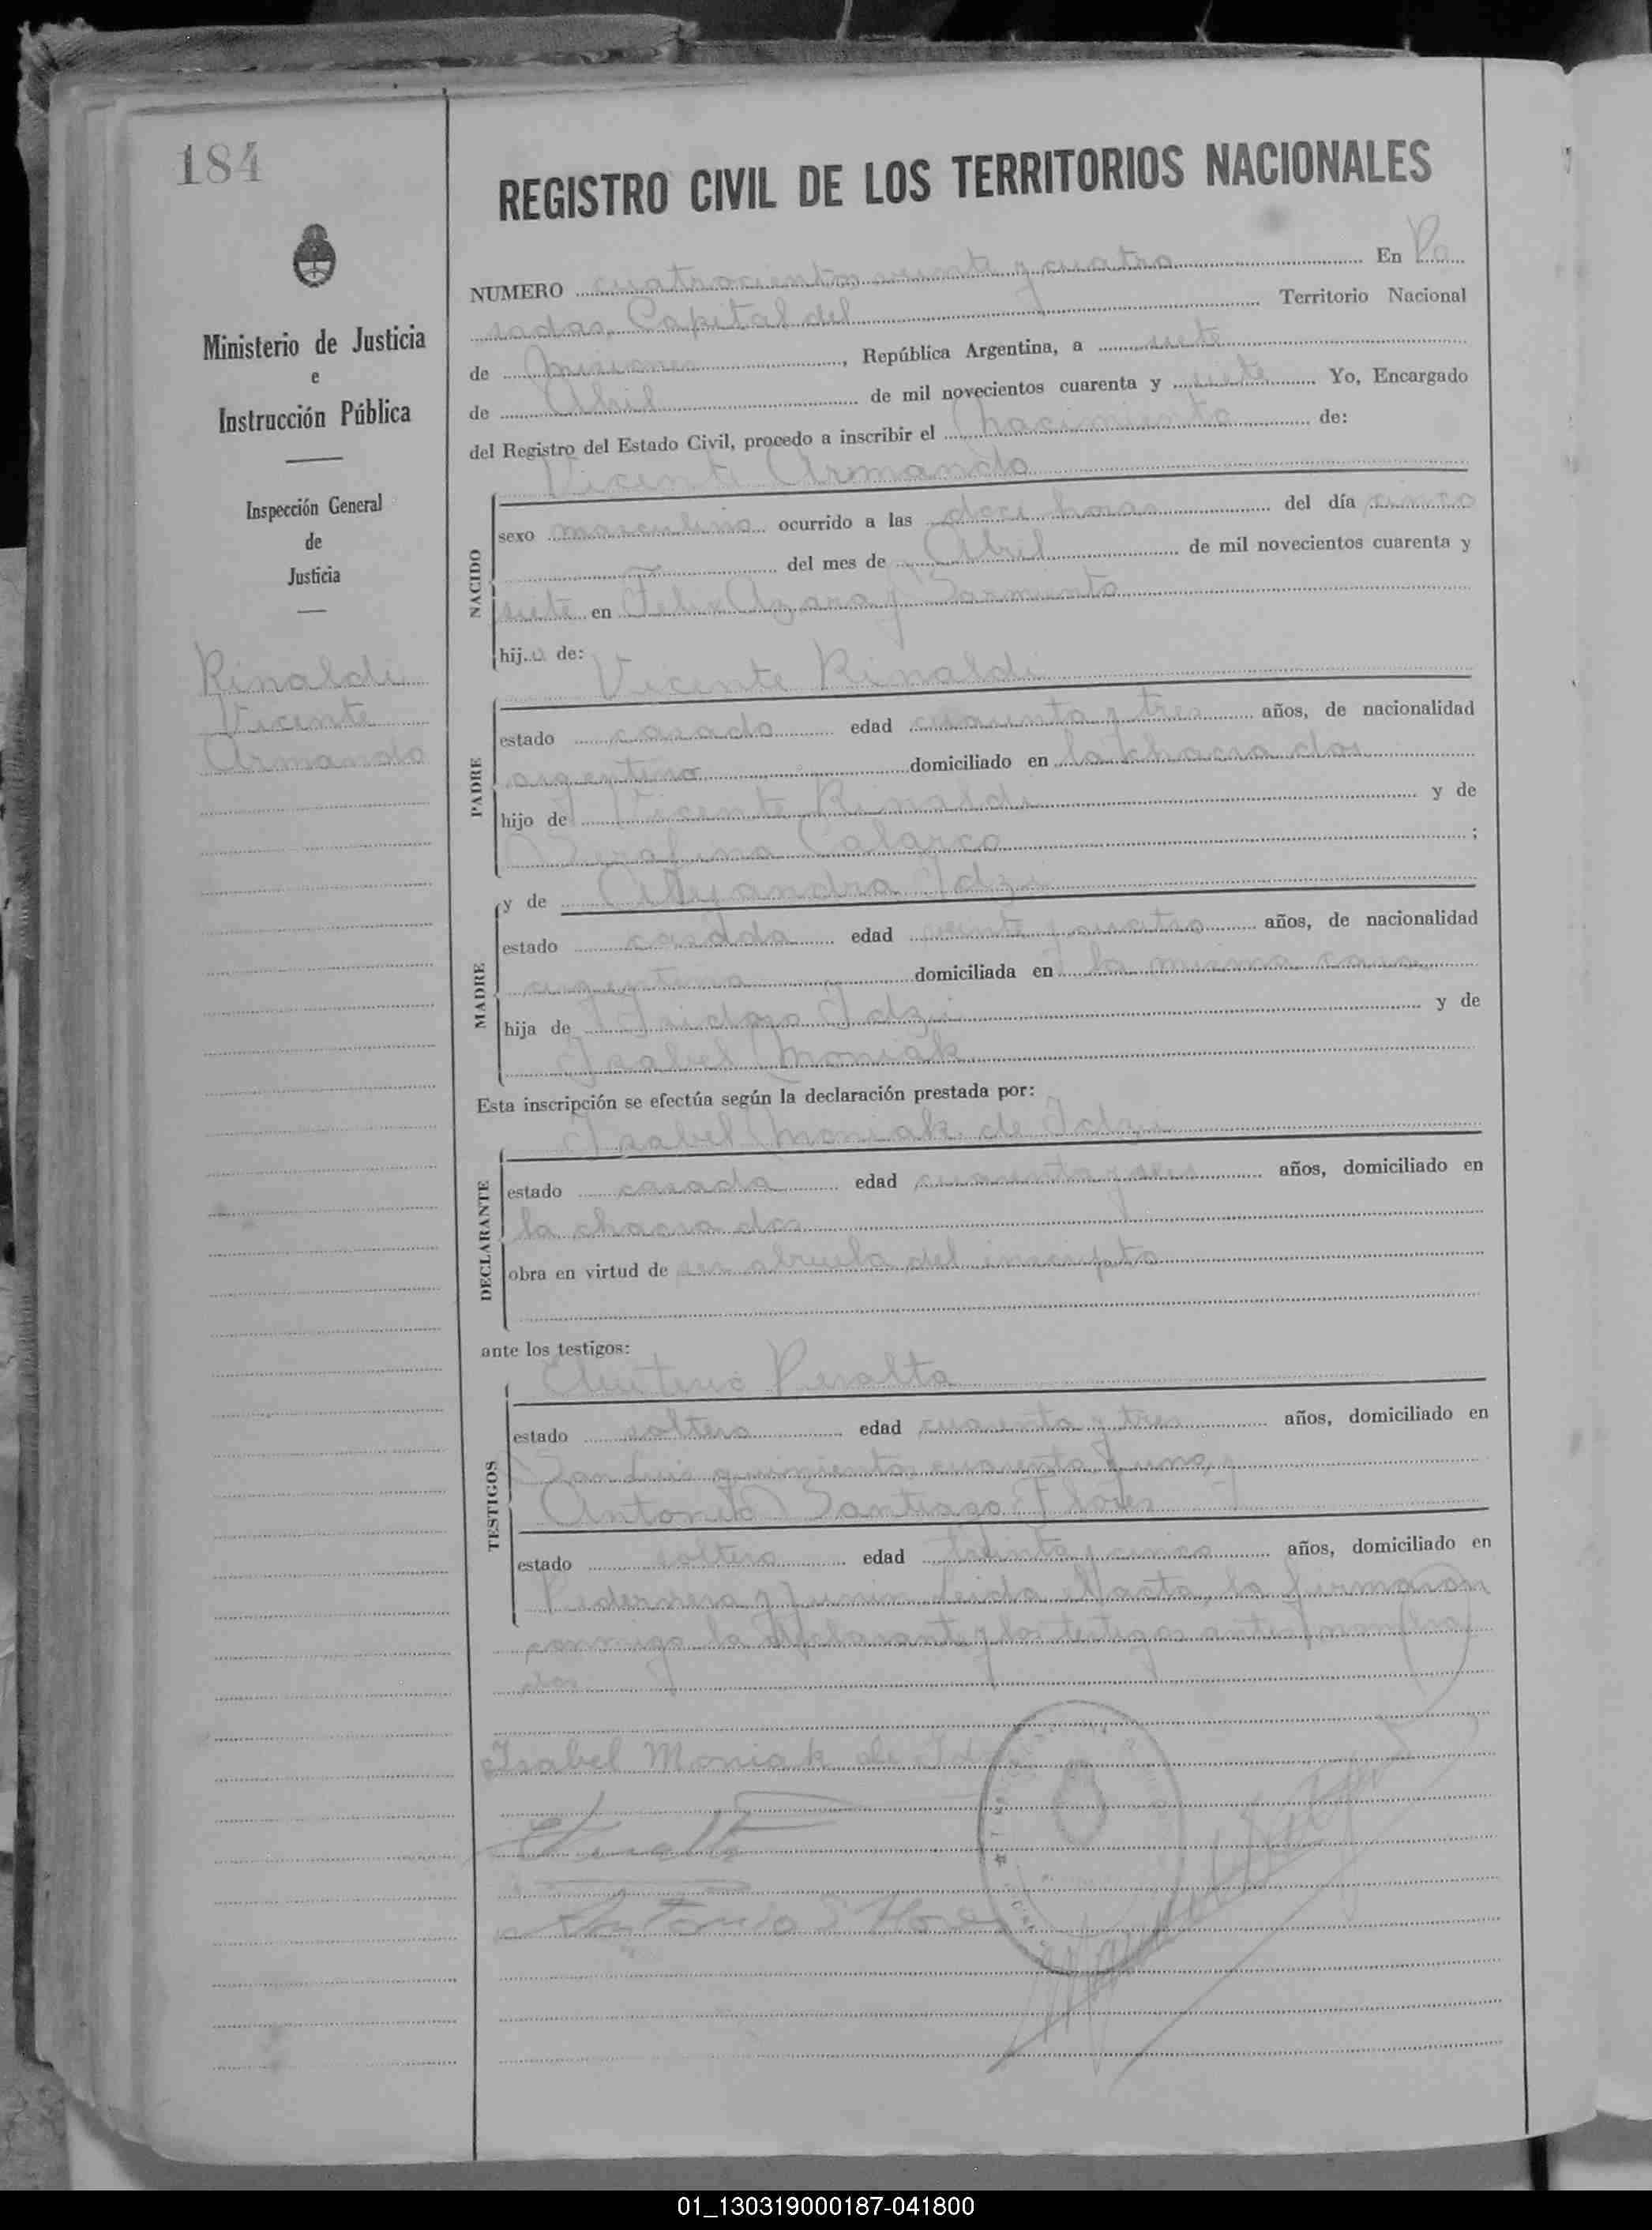 184
Ministerio de Justicia
e
Instrucción Pública
Inspección General
de
Justicia
Rinaldi
Vicente
Armando
REGISTRO CIVIL DE LOS TERRITORIOS NACIONALES
NUMERO cuatrocientos veinte y cuatro En Po
sadas, Capital del Territorio Nacional
de Misiones, República Argentina, a siete
de Abril de mil novecientos cuarenta y siete Yo, Encargado
del Registro del Estado Civil, procedo a inscribir el nacimiento de:
Vicente Armando
NACIDO
sexo masculino ocurrido a las doce horas del día cinco
del mes de Abril de mil novecientos cuarenta y
siete en Felix Azara y Sarmiento
hijo de:
Vicente Rinaldi
PADRE
estado casado edad cuarenta y tres años, de nacionalidad
argentino domiciliado en la chacra dos
hijo de Vicente Rinaldi y de
Serafina Calarco ;
MADRE
y de Alejandra Idzi
estado casada edad veinte y cuatro años, de nacionalidad
argentina domiciliada en la misma casa
hija de Isidoro Idzi y de
Isabel Moniak
Esta inscripción se efectúa según la declaración prestada por:
Isabel Moniak de Idzi
DECLARANTE
estado casada edad cuarenta y años, domiciliado en
la chacra dos
obra en virtud de ser abuela del inscripto
ante los testigos:
Eleuterio Peralta
TESTIGOS
estado soltero edad cuarenta y tres años, domiciliado en
San Luis quinientos cuarenta y uno y
Antonio Santiago Flores
estado soltero edad treinta y cinco años, domiciliado en
Pedernera y Junin. Leida el acta, la firmaron
conmigo la declarante y los testigos antes nombra
dos
Isabel Moniak de Idzi
Antonio S Flores
01_130319000187-041800